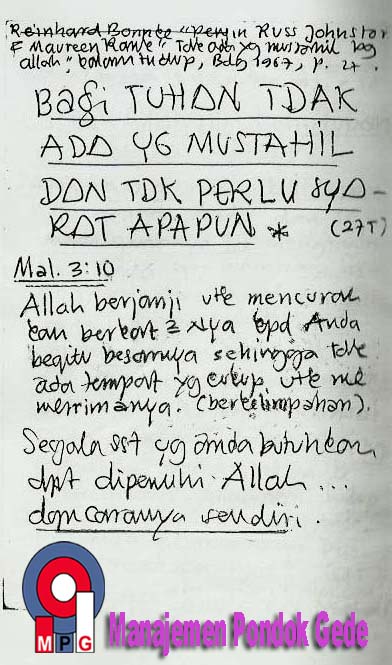 Reinhard Bonnke "Penjin Russ Johnston
& Maureen Rank" Tdk ada yg mustahil bg
Allah", Kalam Hidup, Bdg 1967, p. 27.
BAGI TUHAN TDAK
ADA YG MUSTAHIL
DAN TDK PERLU SYA-
RAT APAPUN * (27T)
Mal. 3:10
Allah berjanji utk mencurah
kan berkat ² Nya kpd Anda
begitu besarnya sehingga tdk
ada tempat yg cukup utk me
nerimanya. (berkelimpahan).
Segala sst yg anda butuhkan
dpt dipenuhi Allah ...
dgn caranya sendiri.
MPG
Manajemen Pondok Gede